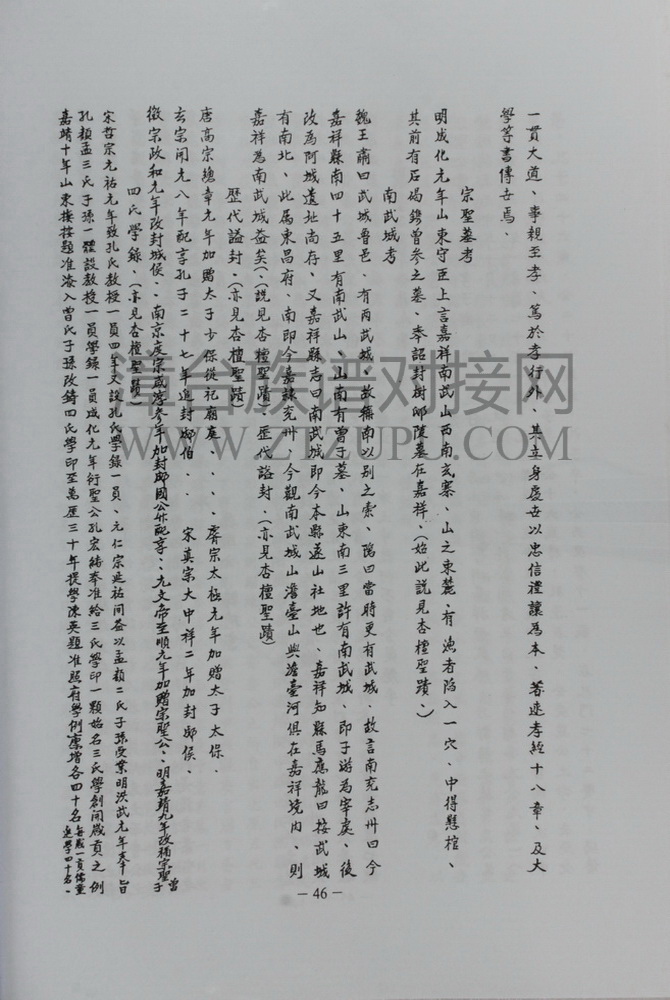 一貫大道、事親至孝、篤於孝行外、其立身處世以忠信禮讓為本、著述孝經十八章、及大
學等書傳世焉、
宗聖墓考
明成化元年山東守臣上言嘉祥南武山西南玄寨、山之東麓、有漁者陷入一穴、中得懸棺、
其前有石碣鐫曾參之墓、奉詔封樹邱陵墓在嘉祥、(始此說見杏檀聖蹟、)
南武城考
魏王肅曰武城魯邑、有兩武城、故稱南以別之索、隱曰當時更有武城、故言南兗志卅曰今
嘉祥縣南四十五里有南武山、山南有曾子墓、山東南三里許有南武城、即子游為宰處、後
改為阿城遺址尚存、又嘉祥縣志曰南武城即今本縣遂山社地也、嘉祥知縣馬應龍曰按武城
有南北、此屬東昌府、南即今嘉隸兗卅、今觀南武城山澹臺山與澹臺河俱在嘉祥境內、則
嘉祥為南武城益矣、(說見杏檀聖蹟、歷代諡封、(亦見杏檀聖蹟)
歷代諡封、(亦見杏檀聖蹟)
唐高宗總章元年加贈太子少保從祀廟庭、、、、睿宗太極元年加贈太子太保、
玄宗開元八年配享孔子二十七年進封郕伯、、 宋真宗大中祥二年加封郕侯、
徽宗政和元年改封城侯、、南京度宗咸淳參年加封郕國公並配享、、元文帝至順元年加贈宗聖公、、明嘉靖九年改稱宗聖曾子
四氏學錄、(亦見杏檀聖蹟)
宋哲宗元祐元年致孔氏教授一員四年又設孔氏學錄一員、元仁宗延祐間益以孟顏二氏子孫受業明洪武元年奉旨
孔顏孟三氏子孫一體設教授一員學錄一員成化元年衍聖公孔宏緒奉准給三氏學印一顆始名三氏學創開歲貢之例
嘉靖十年山東按題准添入曾氏子孫改鑄四氏學印至萬歷三十年提學陳英題准照府學例廩增各四十名每歲一貢儒童進學四十名、
－46－
譜合族谱对接网
WWW.ZTZUPU.COM